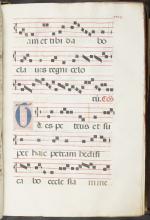 am et tibi da bo
cla ues regni celo
rū.
U es pe trus et su
per hanc petram hedifi
ca bo eccle sia m me